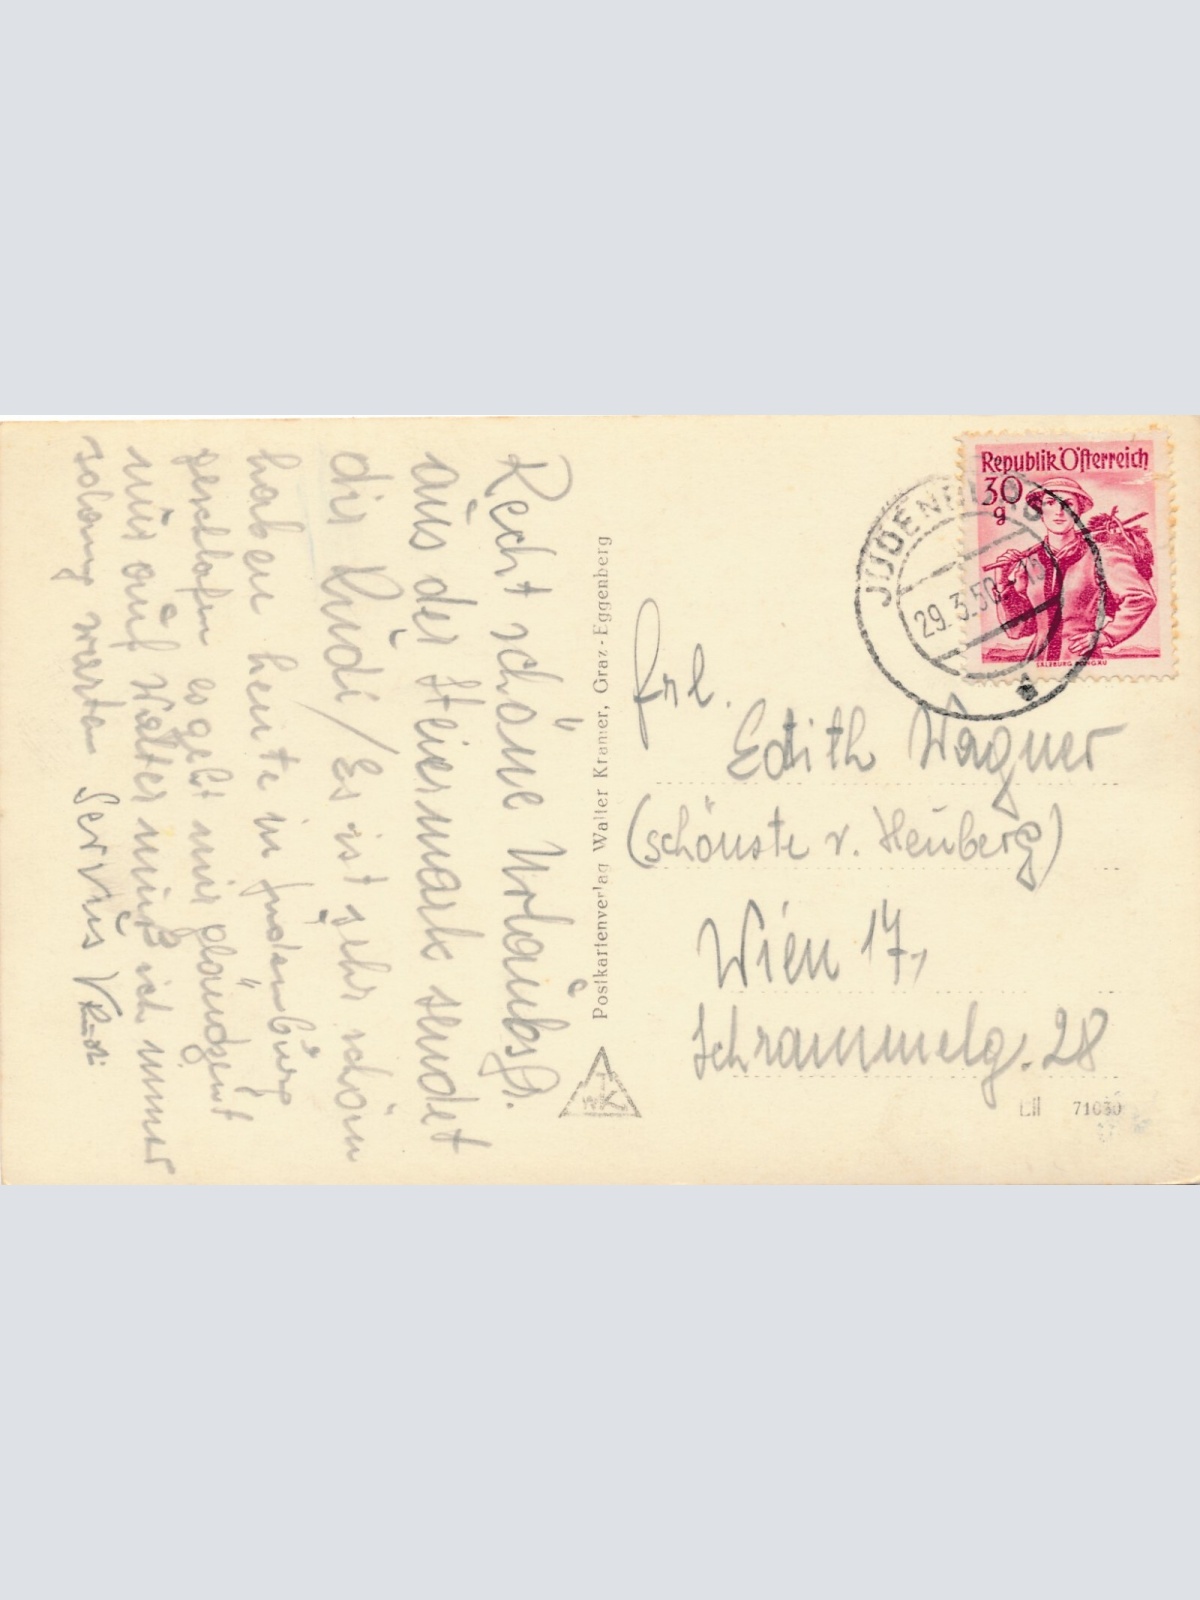 Recht schöne Urlaubsg.
aus der Steiermark sendet
dir Rudi / Es ist sehr schön
haben heute in Judenburg
geschlafen es geht mir glänzent
nur auf Walter muß ich immer
solang warten Servus Rudi
Postkartenverlag Walter Kramer, Graz-Eggenberg
WKK
Republik Österreich
30
g
SALZBURG PONGAU
JUDENBURG
29.3.50-18
d
Frl.
Edith Wagner
(schönste v. Heuberg)
Wien 17,
Schrammelg. 28
71030